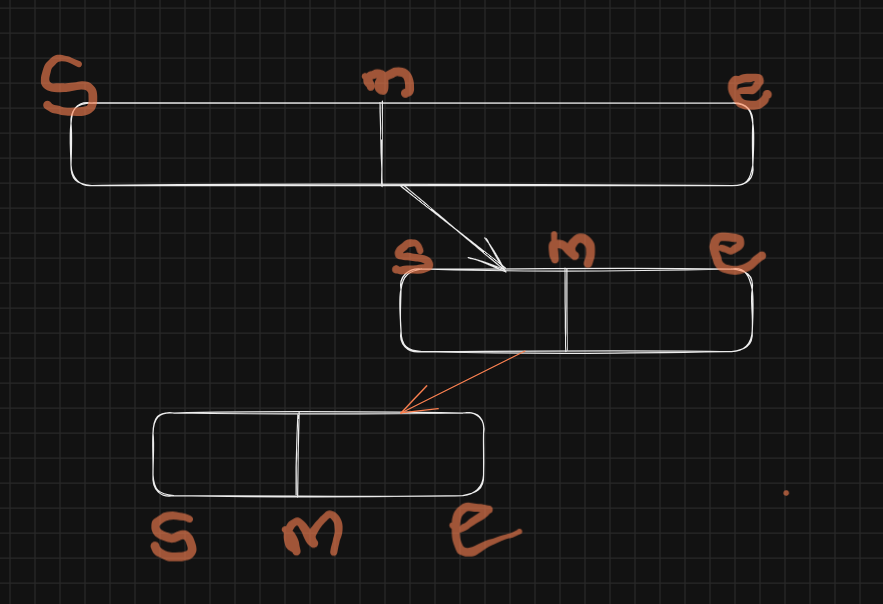 S m e
s m e
S m e